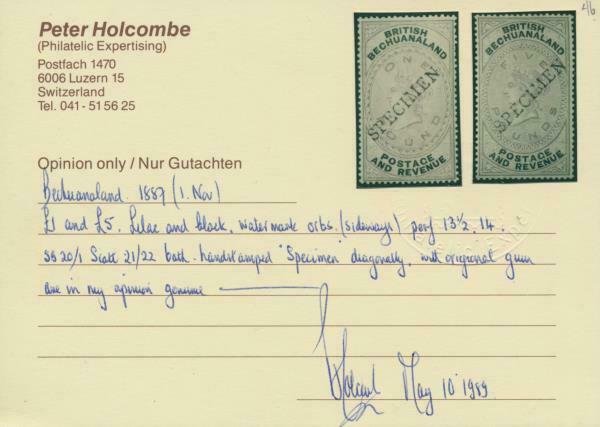 Peter Holcombe
(Philatelic Expertising)
Postfach 1470
6006 Luzern 15
Switzerland
Tel. 041 - 51 56 25
4/6
BRITISH
BECHUANALAND
ONE
POUND
SPECIMEN
POSTAGE
AND REVENUE
BRITISH
BECHUANALAND
FIVE
POUNDS
SPECIMEN
POSTAGE
AND REVENUE
Opinion only / Nur Gutachten
Bechuanaland. 1887 (1. Nov)
£1 and £5. Lilac and black. watermark orbs. (sideways) perf 13½. 14.
SG 20/1 Scott 21/22 both handstamped "Specimen" diagonally, with origional gum
are in my opinion genuine
May 10 1989